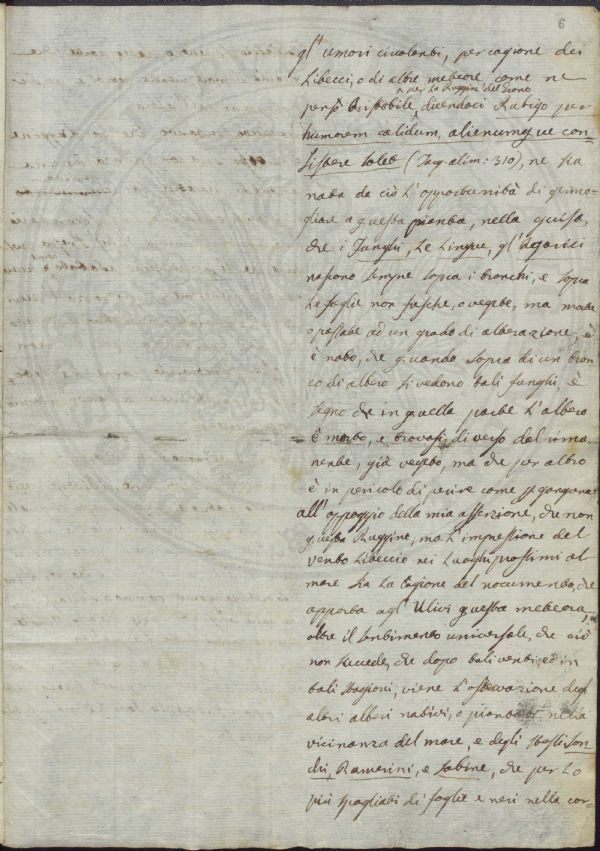 6
gl' umori circolanti, per cagione dei
Libecci, o di altre meteore, come ne
^ per la Ruggine del Grano
pensò Aristotile, dicendoci Rubigo per
humorem calidum, alienumque con-
sistere solet (Jag. alim: 310), ne sia
nata da ciò l'opportunità di germo-
gliare a questa pianta, nella guisa,
che i Funghi, le Lingue, gl'Agarici
nascono sempre sopra i tronchi, e sopra
le foglie non fresche, o vegete, ma morte
o passate ad un grado di alterazione; ed
è noto, che quando sopra di un tron
co di albero si vedono tali funghi, è
segno che in quella parte l'albero
è morto, e trovasi diverso dal rima
nente, già vegeto, ma che per altro
è in pericolo di perire come per gangrena.
all'appoggio della mia asserzione, che non
questa Ruggine, ma l'impressione del
vento Libeccio nei luoghi prossimi al
mare sia la cagione del nocumento, che
apporta agl' Ulivi questa meteora,
oltre il sentimento universale, che ciò
non succede, che dopo tali venti, ed in
tali stagioni, viene l'osservazione degl
altri alberi nativi, o piantati nella
vicinanza del mare, e degli stessi Lon
chi, Ramerini, e Sabine, che per lo
più spogliati di foglie e neri nella cor=